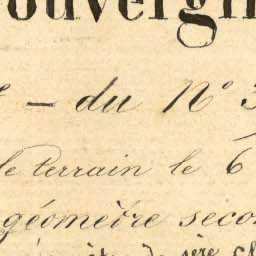 ouvergi
– du N° 3
le terrain le 6
géomètre seco